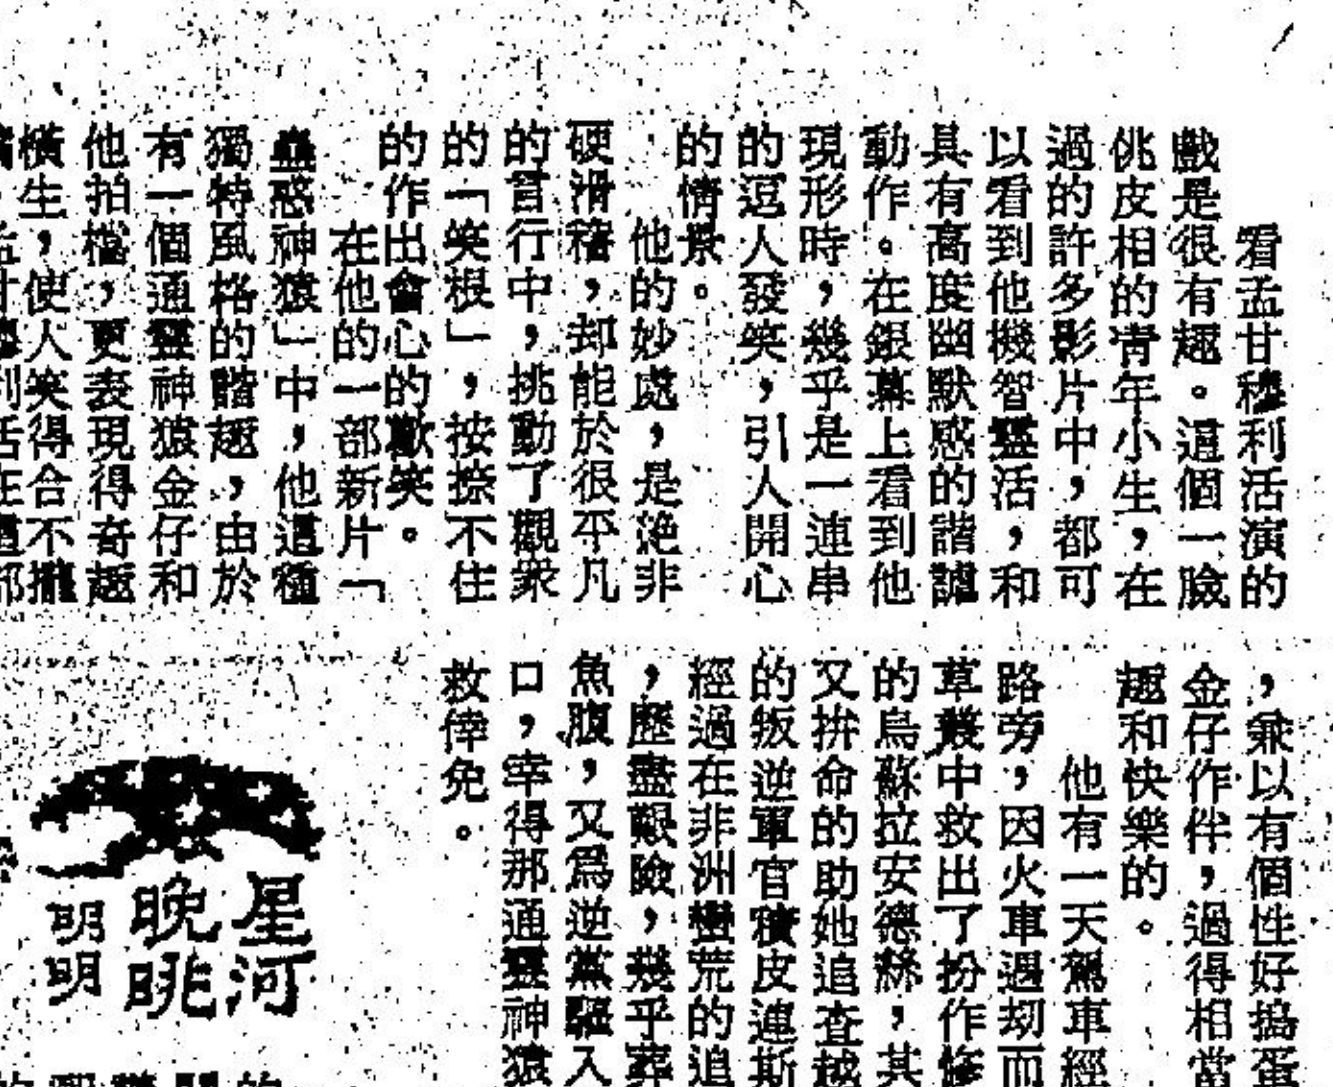 看孟甘穆利活演的
戲是很有趣。這個一臉
佻皮相的青年小生，在
過的許多影片中，都可
以看到他機智靈活，和
具有高度幽默感的諧謔
動作。在銀幕上看到他
現形時，幾乎是一連串
的逗人發笑，引人開心
的情景。
他的妙處，是絶非
硬滑稽，却能於很平凡
的言行中，挑動了觀衆
的「笑根」，按捺不住
的作出會心的歡笑。
在他的一部新片「
蠱惑神猿」中，他這種
獨特風格的諧趣，由於
有一個通靈神猿金仔和
他拍檔，更表現得奇趣
橫生，使人笑得合不攏
，兼以有個性好搗蛋
金仔作伴，過得相當
趣和快樂的。
他有一天駕車經
路旁，因火車遇刧而
草叢中救出了扮作修
的烏蘇拉安德絲，其
又拚命的助她追查越
的叛逆軍官積皮連斯
經過在非洲蠻荒的追
，歷盡艱險，幾乎葬
魚腹，又爲逆黨驅入
口，幸得那通靈神猿
救倖免。
星河
晚眺
明明